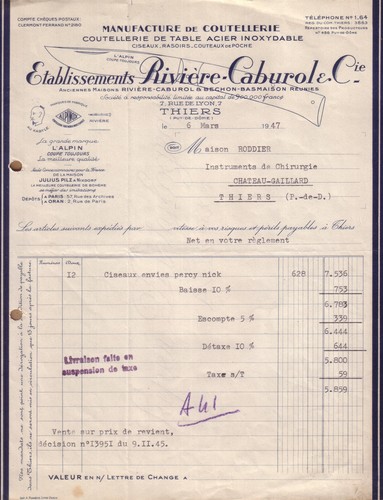 COMPTE CHÈQUES POSTAUX
CLERMONT-FERRAND N° 2160
MANUFACTURE DE COUTELLERIE
COUTELLERIE DE TABLE ACIER INOXYDABLE
CISEAUX, RASOIRS, COUTEAUX DE POCHE
TÉLÉPHONE N° 1.64
L'ALPIN
COUPE TOUJOURS
Etablissements Rivière-Caburol & Cie
ANCIENNES MAISONS RIVIÈRE-CABUROL & BECHON-BASMAISON RÉUNIES
Société à responsabilité limitée au capital de 200.000 francs
7, RUE DE LYON, 7
THIERS
(PUY-DE-DÔME)
le 6 Mars 1947
L'ALPIN
La grande marque
L'ALPIN
COUPE TOUJOURS
La meilleure qualité
DE LA MAISON
JULIUS PILZ
Dépôts
à PARIS
à ORAN
Maison RODDIER
Instruments de Chirurgie
CHATEAU-GAILLARD
THIERS (P.-de-D.)
Les articles suivants expédiés par
vitesse à vos risques et périls payables à Thiers
Net en votre règlement
12 Ciseaux envies percy nick 628 7.536
Baisse 10 % 753
6.783
Escompte 5 % 339
6.444
Détaxe 10% 644
5.800
Taxe a/T 59
5.859
Livraison faite en
suspension de taxe
Vente sur prix de revient,
décision n°1395I du 9.II.45.
VALEUR EN N/ LETTRE DE CHANGE A